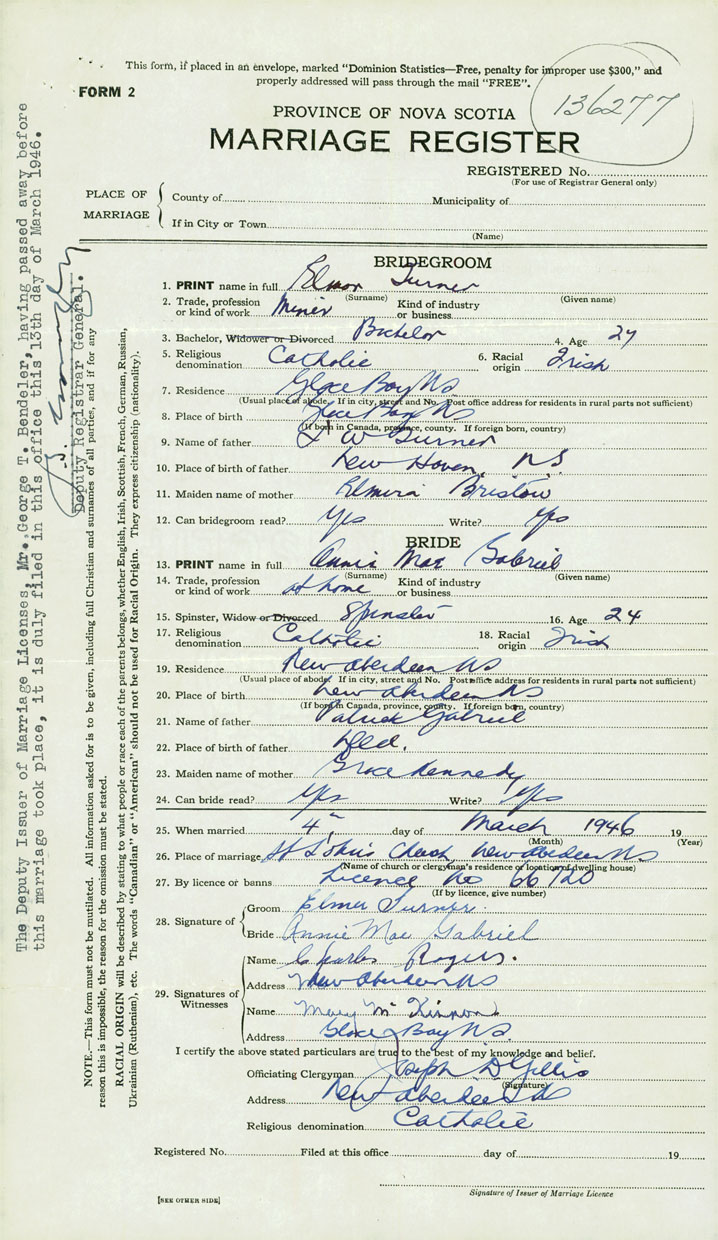 This form, if placed in an envelope, marked "Dominion Statistics—Free, penalty for improper use $300," and
properly addressed will pass through the mail "FREE".
FORM 2
136277
PROVINCE OF NOVA SCOTIA
MARRIAGE REGISTER
REGISTERED No.
(For use of Registrar General only)
PLACE OF MARRIAGE
County of Municipality of
If in City or Town
(Name)
BRIDEGROOM
1. PRINT name in full Elmer Turner
(Surname) (Given name)
2. Trade, profession or kind of work Miner Kind of industry or business
3. Bachelor, Widower or Divorced Bachelor 4. Age 27
5. Religious denomination Catholic 6. Racial origin Irish
7. Residence Glace Bay NS
(Usual place of abode. If in city, street and No. Post office address for residents in rural parts not sufficient)
8. Place of birth Glace Bay NS
(If born in Canada, province, county. If foreign born, country)
9. Name of father W Turner
10. Place of birth of father New Haven, NS
11. Maiden name of mother Elmira Bristow
12. Can bridegroom read? Yes Write? Yes
BRIDE
13. PRINT name in full Annie Mae Gabriel
(Surname) (Given name)
14. Trade, profession or kind of work at home Kind of industry or business
15. Spinster, Widow or Divorced Spinster 16. Age 24
17. Religious denomination Catholic 18. Racial origin Irish
19. Residence New Aberdeen NS
(Usual place of abode. If in city, street and No. Post office address for residents in rural parts not sufficient)
20. Place of birth New Aberdeen NS
(If born in Canada, province, county. If foreign born, country)
21. Name of father Patrick Gabriel
22. Place of birth of father Nfld.
23. Maiden name of mother Grace Kennedy
24. Can bride read? Yes Write? Yes
25. When married 4" day of March 1946 19
(Month) (Year)
26. Place of marriage St John's Church New Aberdeen NS
(Name of church or clergyman's residence or location of dwelling house)
27. By licence or banns Licence No 66120
(If by licence, give number)
28. Signature of
Groom Elmer Turner
Bride Annie Mae Gabriel
29. Signatures of Witnesses
Name Charles Rogers.
Address New Aberdeen NS
Name Mary McKinnon
Address Glace Bay NS.
I certify the above stated particulars are true to the best of my knowledge and belief.
Officiating Clergyman Joseph D Gillis
(Signature)
Address New Aberdeen NS
Religious denomination Catholic
Registered No. Filed at this office day of 19
Signature of Issuer of Marriage Licence
[SEE OTHER SIDE]
The Deputy Issuer of Marriage Licenses, Mr. George T. Bendeler, having passed away before
this marriage took place, it is duly filed in this office this 13th day of March 1946.
Deputy Registrar General.
NOTE.—This form must not be mutilated. All information asked for is to be given, including full Christian and surnames of all parties, and if for any
reason this is impossible, the reason for the omission must be stated.
RACIAL ORIGIN will be described by stating to what people or race each of the parents belongs, whether English, Irish, Scottish, French, German, Russian,
Ukrainian (Ruthenian), etc. The words "Canadian" or "American" should not be used for Racial Origin. They express citizenship (nationality).